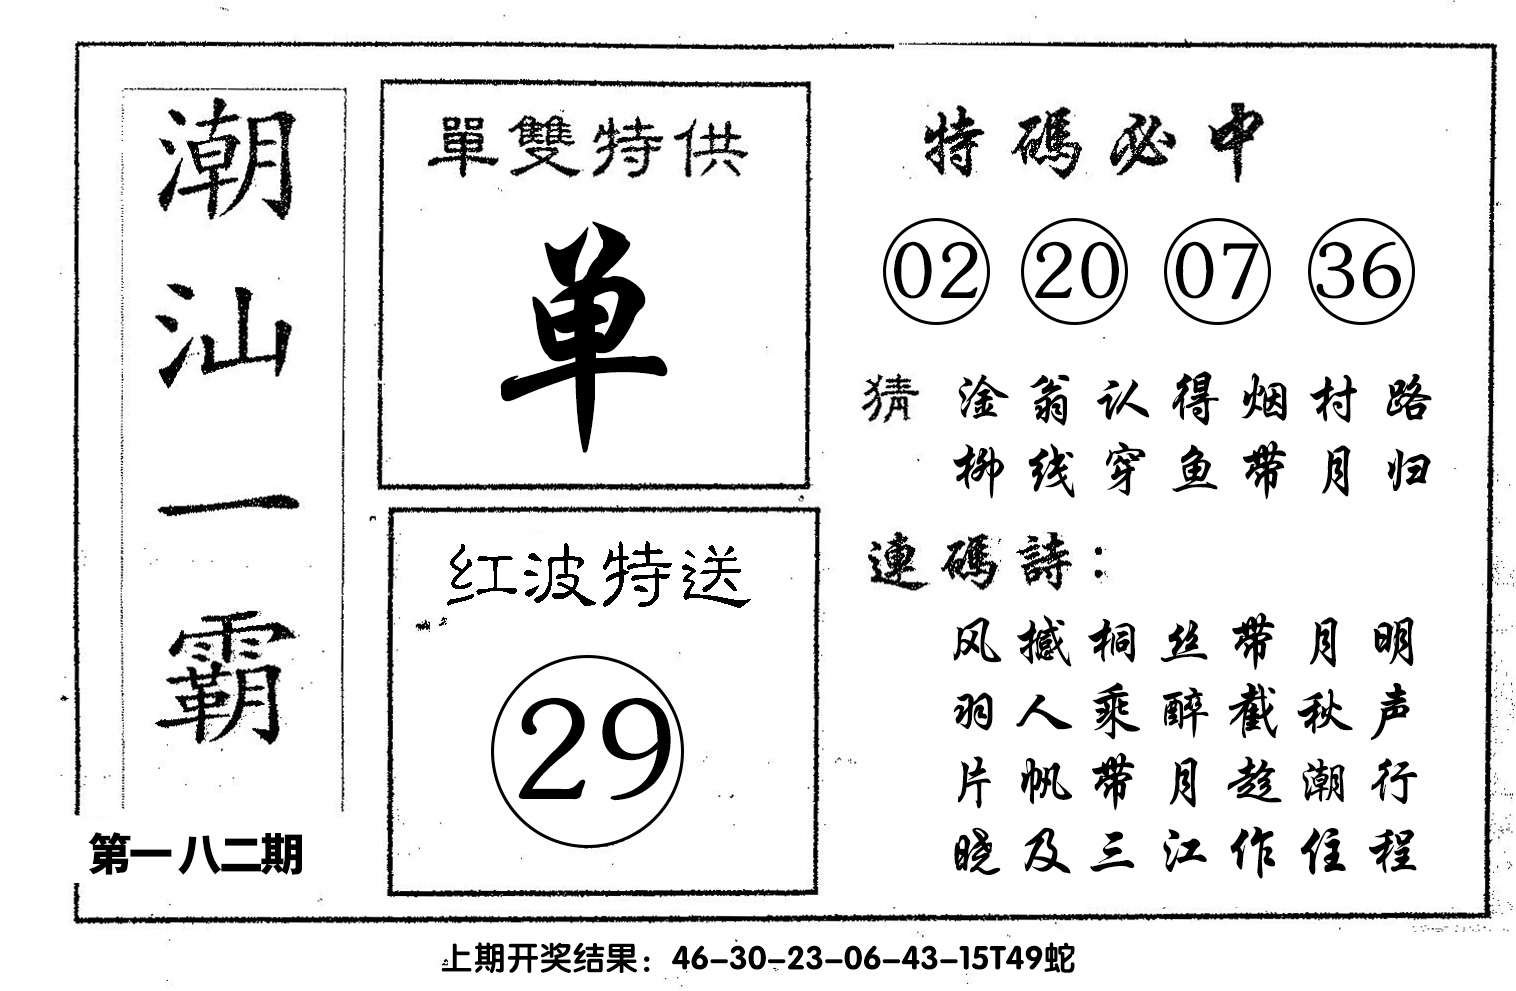 潮汕一霸
第一八二期
單雙特供
单
红波特送
29
特碼必中
02 20 07 36
猜 淦翁认得烟村路
柳线穿鱼带月归
連碼詩：
风撼桐丝带月明
羽人乘醉截秋声
片帆带月趁潮行
晓及三江作住程
上期开奖结果：46-30-23-06-43-15T49蛇